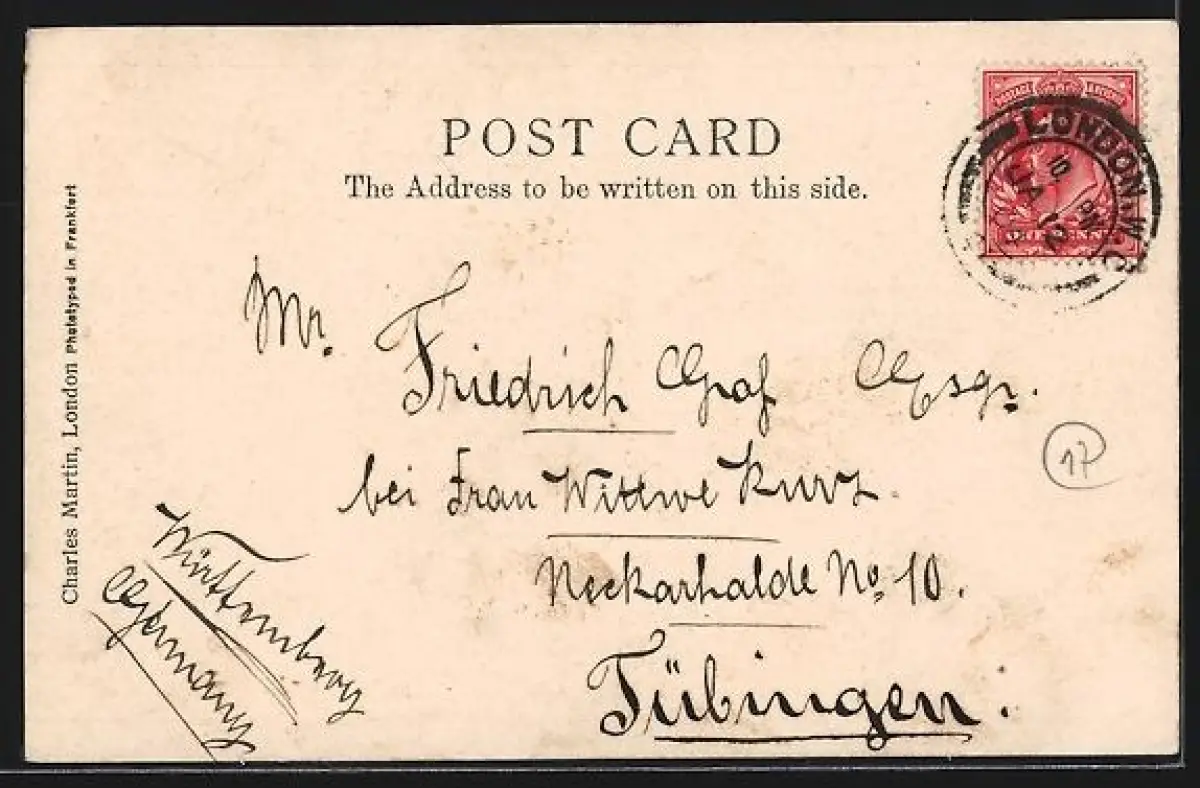 POST CARD
The Address to be written on this side.
POSTAGE REVENUE
LONDON. W.C
10. PM
JA 12
ONE PENNY
Mr. Friedrich Graf Esqr.
bei Frau Wittwe Kurz.
Neckarhalde No. 10.
Tübingen.
Württemberg
Germany
17
Charles Martin, London Phototyped in Frankfort